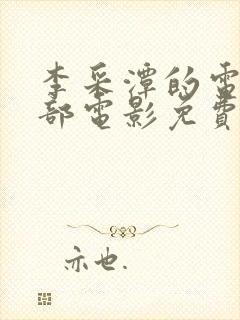 李采潭的電
部電影免費
亦也.